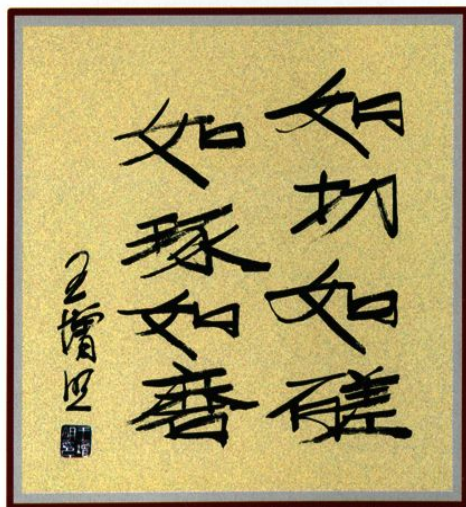 如切如磋
如琢如磨
王增